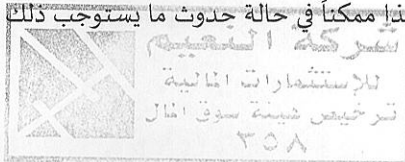 ذا ممكناً في حالة حدوث ما يستوجب ذلك
شركة النعيم
للإستثمارات المالية
ترخيص هيئة سوق المال
٣٥٨